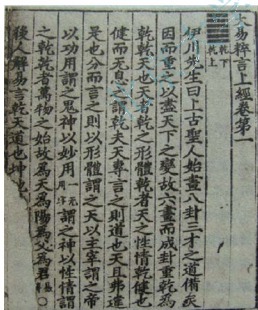 大易粹言上經卷第一
䷀ 乾下
乾上
伊川先生曰上古聖人始畫八卦三才之道備矣
因而重之以盡天下之變故六畫而成卦重乾為
乾乾天也天者乾之形體乾者天之性情乾健也
健而无息之謂乾夫天專言之則道也天且弗違
是也分而言之則以形體謂之天以主宰謂之帝
以功用謂之鬼神以妙用一无用字謂之神以性情謂
之乾乾者萬物之始故為天為陽為父為君
後人解易言乾天道也坤地